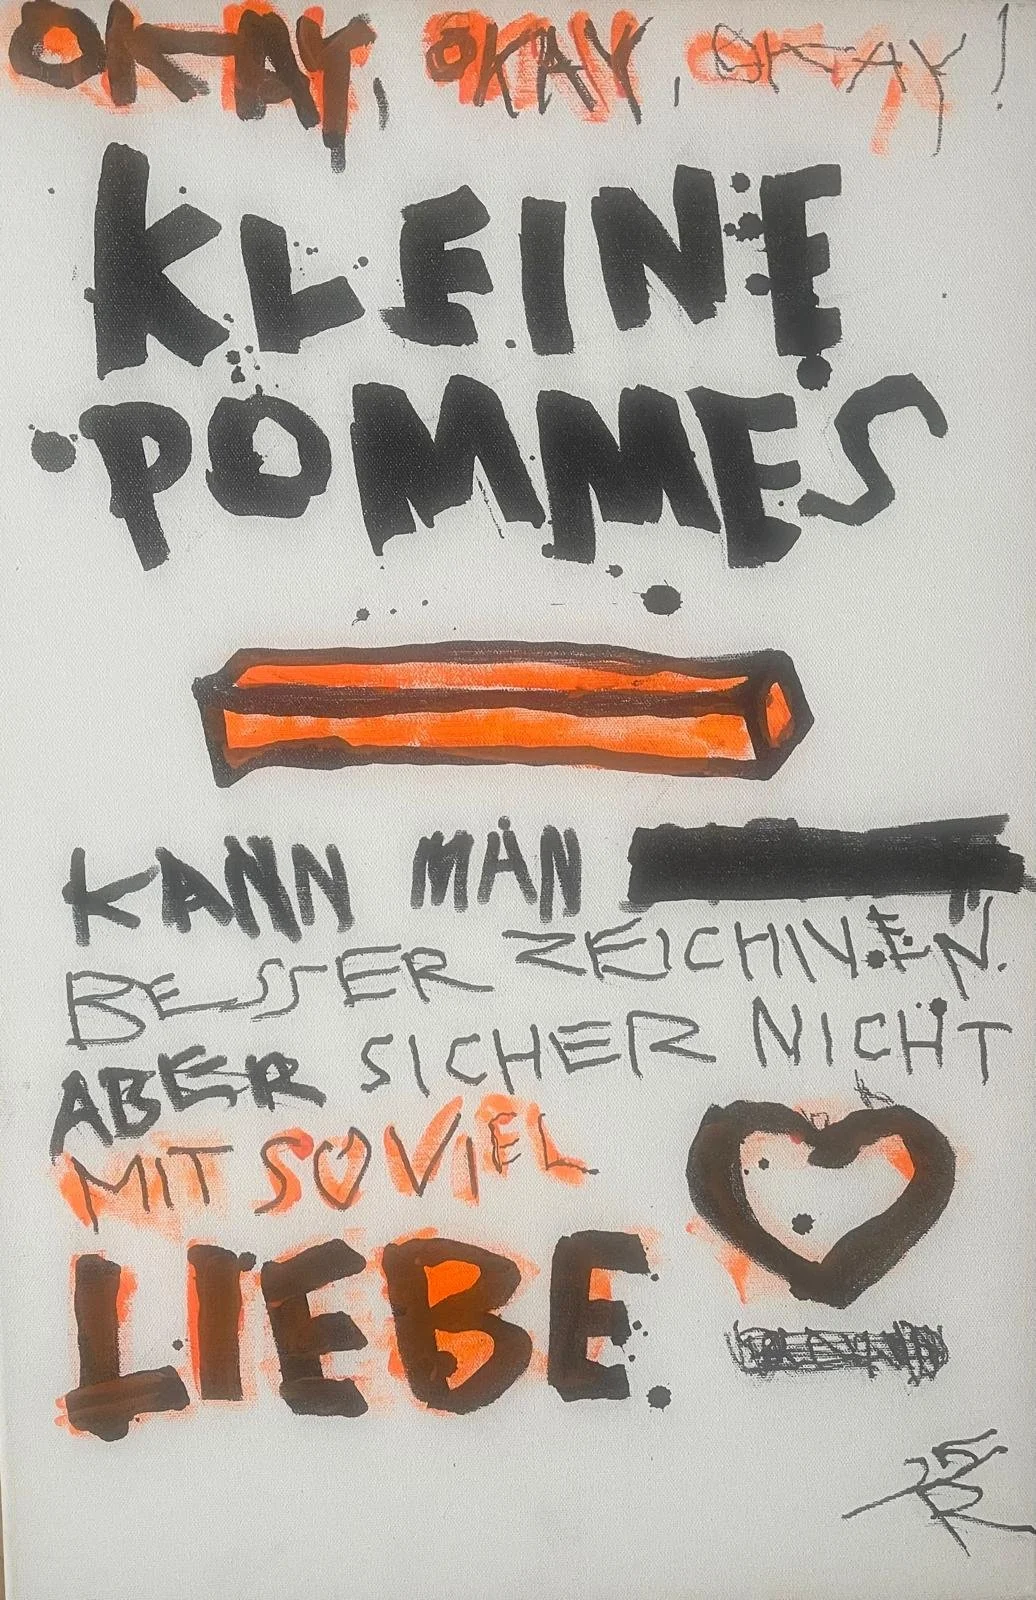 OKAY, OKAY, OKAY!
KLEINE
POMMES
KANN MAN
BESSER ZEICHNEN.
ABER SICHER NICHT
MIT SO VIEL
LIEBE.